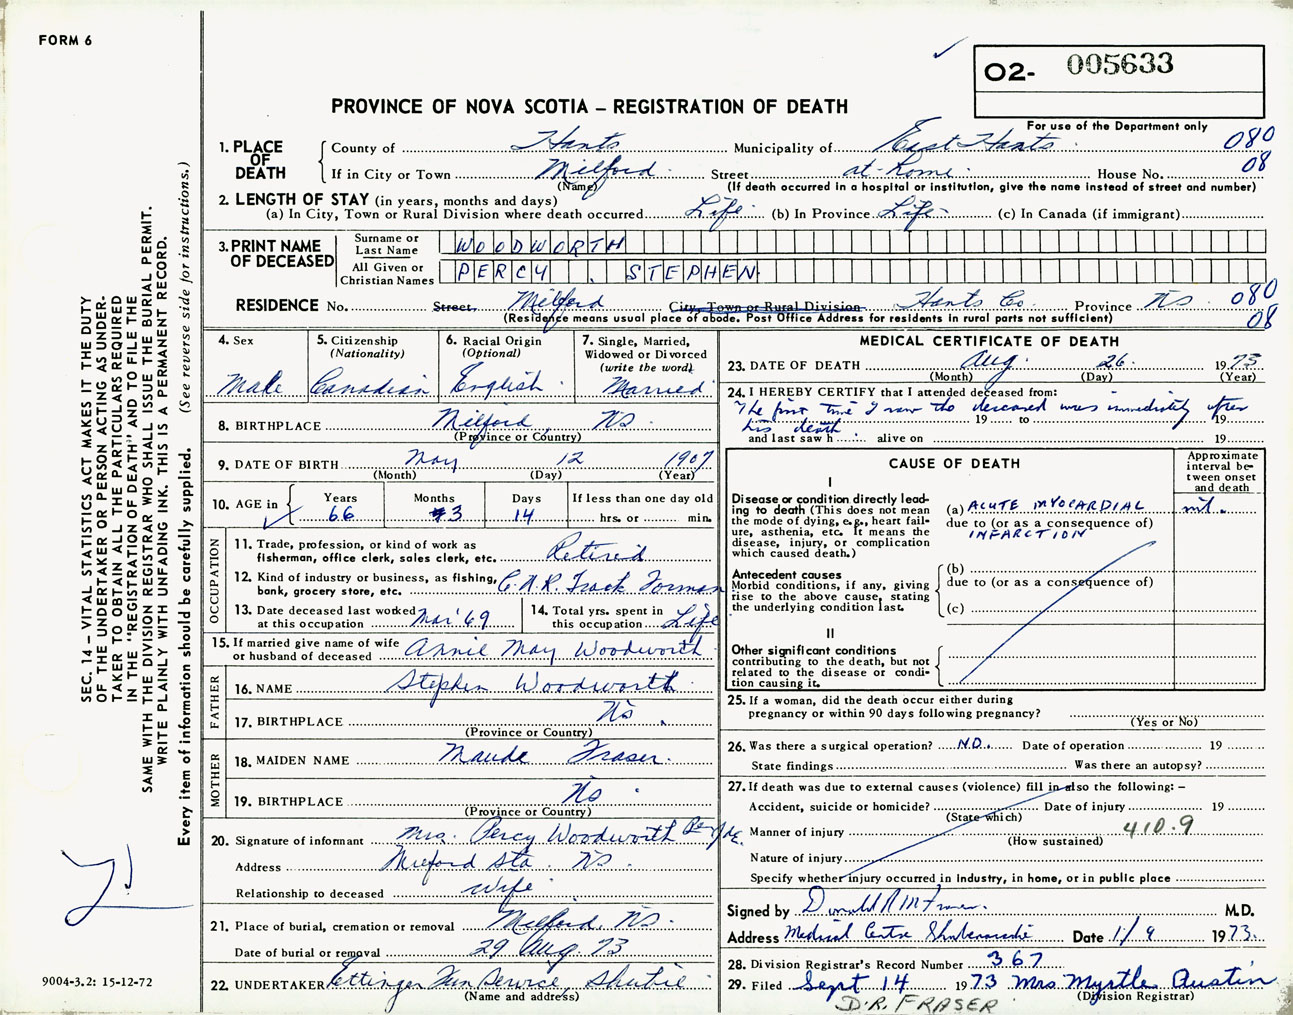 FORM 6
O2- 005633
PROVINCE OF NOVA SCOTIA – REGISTRATION OF DEATH
For use of the Department only
1. PLACE OF DEATH
County of Hants Municipality of East Hants 080
If in City or Town Milford Street at home House No. 08
(Name) (If death occurred in a hospital or institution, give the name instead of street and number)
2. LENGTH OF STAY (in years, months and days)
(a) In City, Town or Rural Division where death occurred Life (b) In Province Life (c) In Canada (if immigrant)
3. PRINT NAME OF DECEASED
Surname or Last Name WOODWORTH
All Given or Christian Names PERCY STEPHEN
RESIDENCE No. Street, Milford City, Town or Rural Division Hants Co. Province NS 080
(Residence means usual place of abode. Post Office Address for residents in rural parts not sufficient) 08
4. Sex
Male
5. Citizenship
(Nationality)
Canadian
6. Racial Origin
(Optional)
English
7. Single, Married,
Widowed or Divorced
(write the word)
Married
8. BIRTHPLACE Milford NS
(Province or Country)
9. DATE OF BIRTH May 12 1907
(Month) (Day) (Year)
10. AGE in
Years Months Days If less than one day old
66 3 14 hrs. or min.
OCCUPATION
11. Trade, profession, or kind of work as
fisherman, office clerk, sales clerk, etc. Retired
12. Kind of industry or business, as fishing,
bank, grocery store, etc. C.N.R. Track Forman
13. Date deceased last worked
at this occupation Mar '69
14. Total yrs. spent in
this occupation Life
15. If married give name of wife
or husband of deceased Annie May Woodworth
FATHER
16. NAME Stephen Woodworth
17. BIRTHPLACE NS
(Province or Country)
MOTHER
18. MAIDEN NAME Maude Fraser
19. BIRTHPLACE NS
(Province or Country)
20. Signature of informant Mrs. Percy Woodworth Per
Address Milford Sta. NS.
Relationship to deceased Wife
21. Place of burial, cremation or removal Milford, NS.
Date of burial or removal 29 Aug. 73
22. UNDERTAKER Ettinger Fun Service, Shubie
(Name and address)
MEDICAL CERTIFICATE OF DEATH
23. DATE OF DEATH Aug. 26 1973
(Month) (Day) (Year)
24. I HEREBY CERTIFY that I attended deceased from:
The first time I saw the deceased was immediately after
his death 19 to 19
and last saw h alive on 19
CAUSE OF DEATH
Approximate
interval be-
tween onset
and death
I
Disease or condition directly lead-
ing to death (This does not mean
the mode of dying, e.g., heart fail-
ure, asthenia, etc. It means the
disease, injury, or complication
which caused death.)
(a) ACUTE MYOCARDIAL
due to (or as a consequence of)
INFARCTION
Antecedent causes
Morbid conditions, if any, giving
rise to the above cause, stating
the underlying condition last.
(b)
due to (or as a consequence of)
(c)
II
Other significant conditions
contributing to the death, but not
related to the disease or condi-
tion causing it.
25. If a woman, did the death occur either during
pregnancy or within 90 days following pregnancy?
(Yes or No)
26. Was there a surgical operation? NO. Date of operation 19
State findings Was there an autopsy?
27. If death was due to external causes (violence) fill in also the following: –
Accident, suicide or homicide? Date of injury 19
(State which)
Manner of injury 410.9
(How sustained)
Nature of injury
Specify whether injury occurred in industry, in home, or in public place
Signed by Donald R McFraser M.D.
Address Medical Centre Shubenacadie Date 1/9 1973.
28. Division Registrar's Record Number 367
29. Filed Sept 14 1973 Mrs Myrtle Austin
(Division Registrar)
D.R. FRASER
SEC. 14 – VITAL STATISTICS ACT MAKES IT THE DUTY
OF THE UNDERTAKER OR PERSON ACTING AS UNDER-
TAKER TO OBTAIN ALL THE PARTICULARS REQUIRED
IN THE "REGISTRATION OF DEATH" AND TO FILE THE
SAME WITH THE DIVISION REGISTRAR WHO SHALL ISSUE THE BURIAL PERMIT.
WRITE PLAINLY WITH UNFADING INK. THIS IS A PERMANENT RECORD.
Every item of information should be carefully supplied. (See reverse side for instructions.)
9004-3.2: 15-12-72